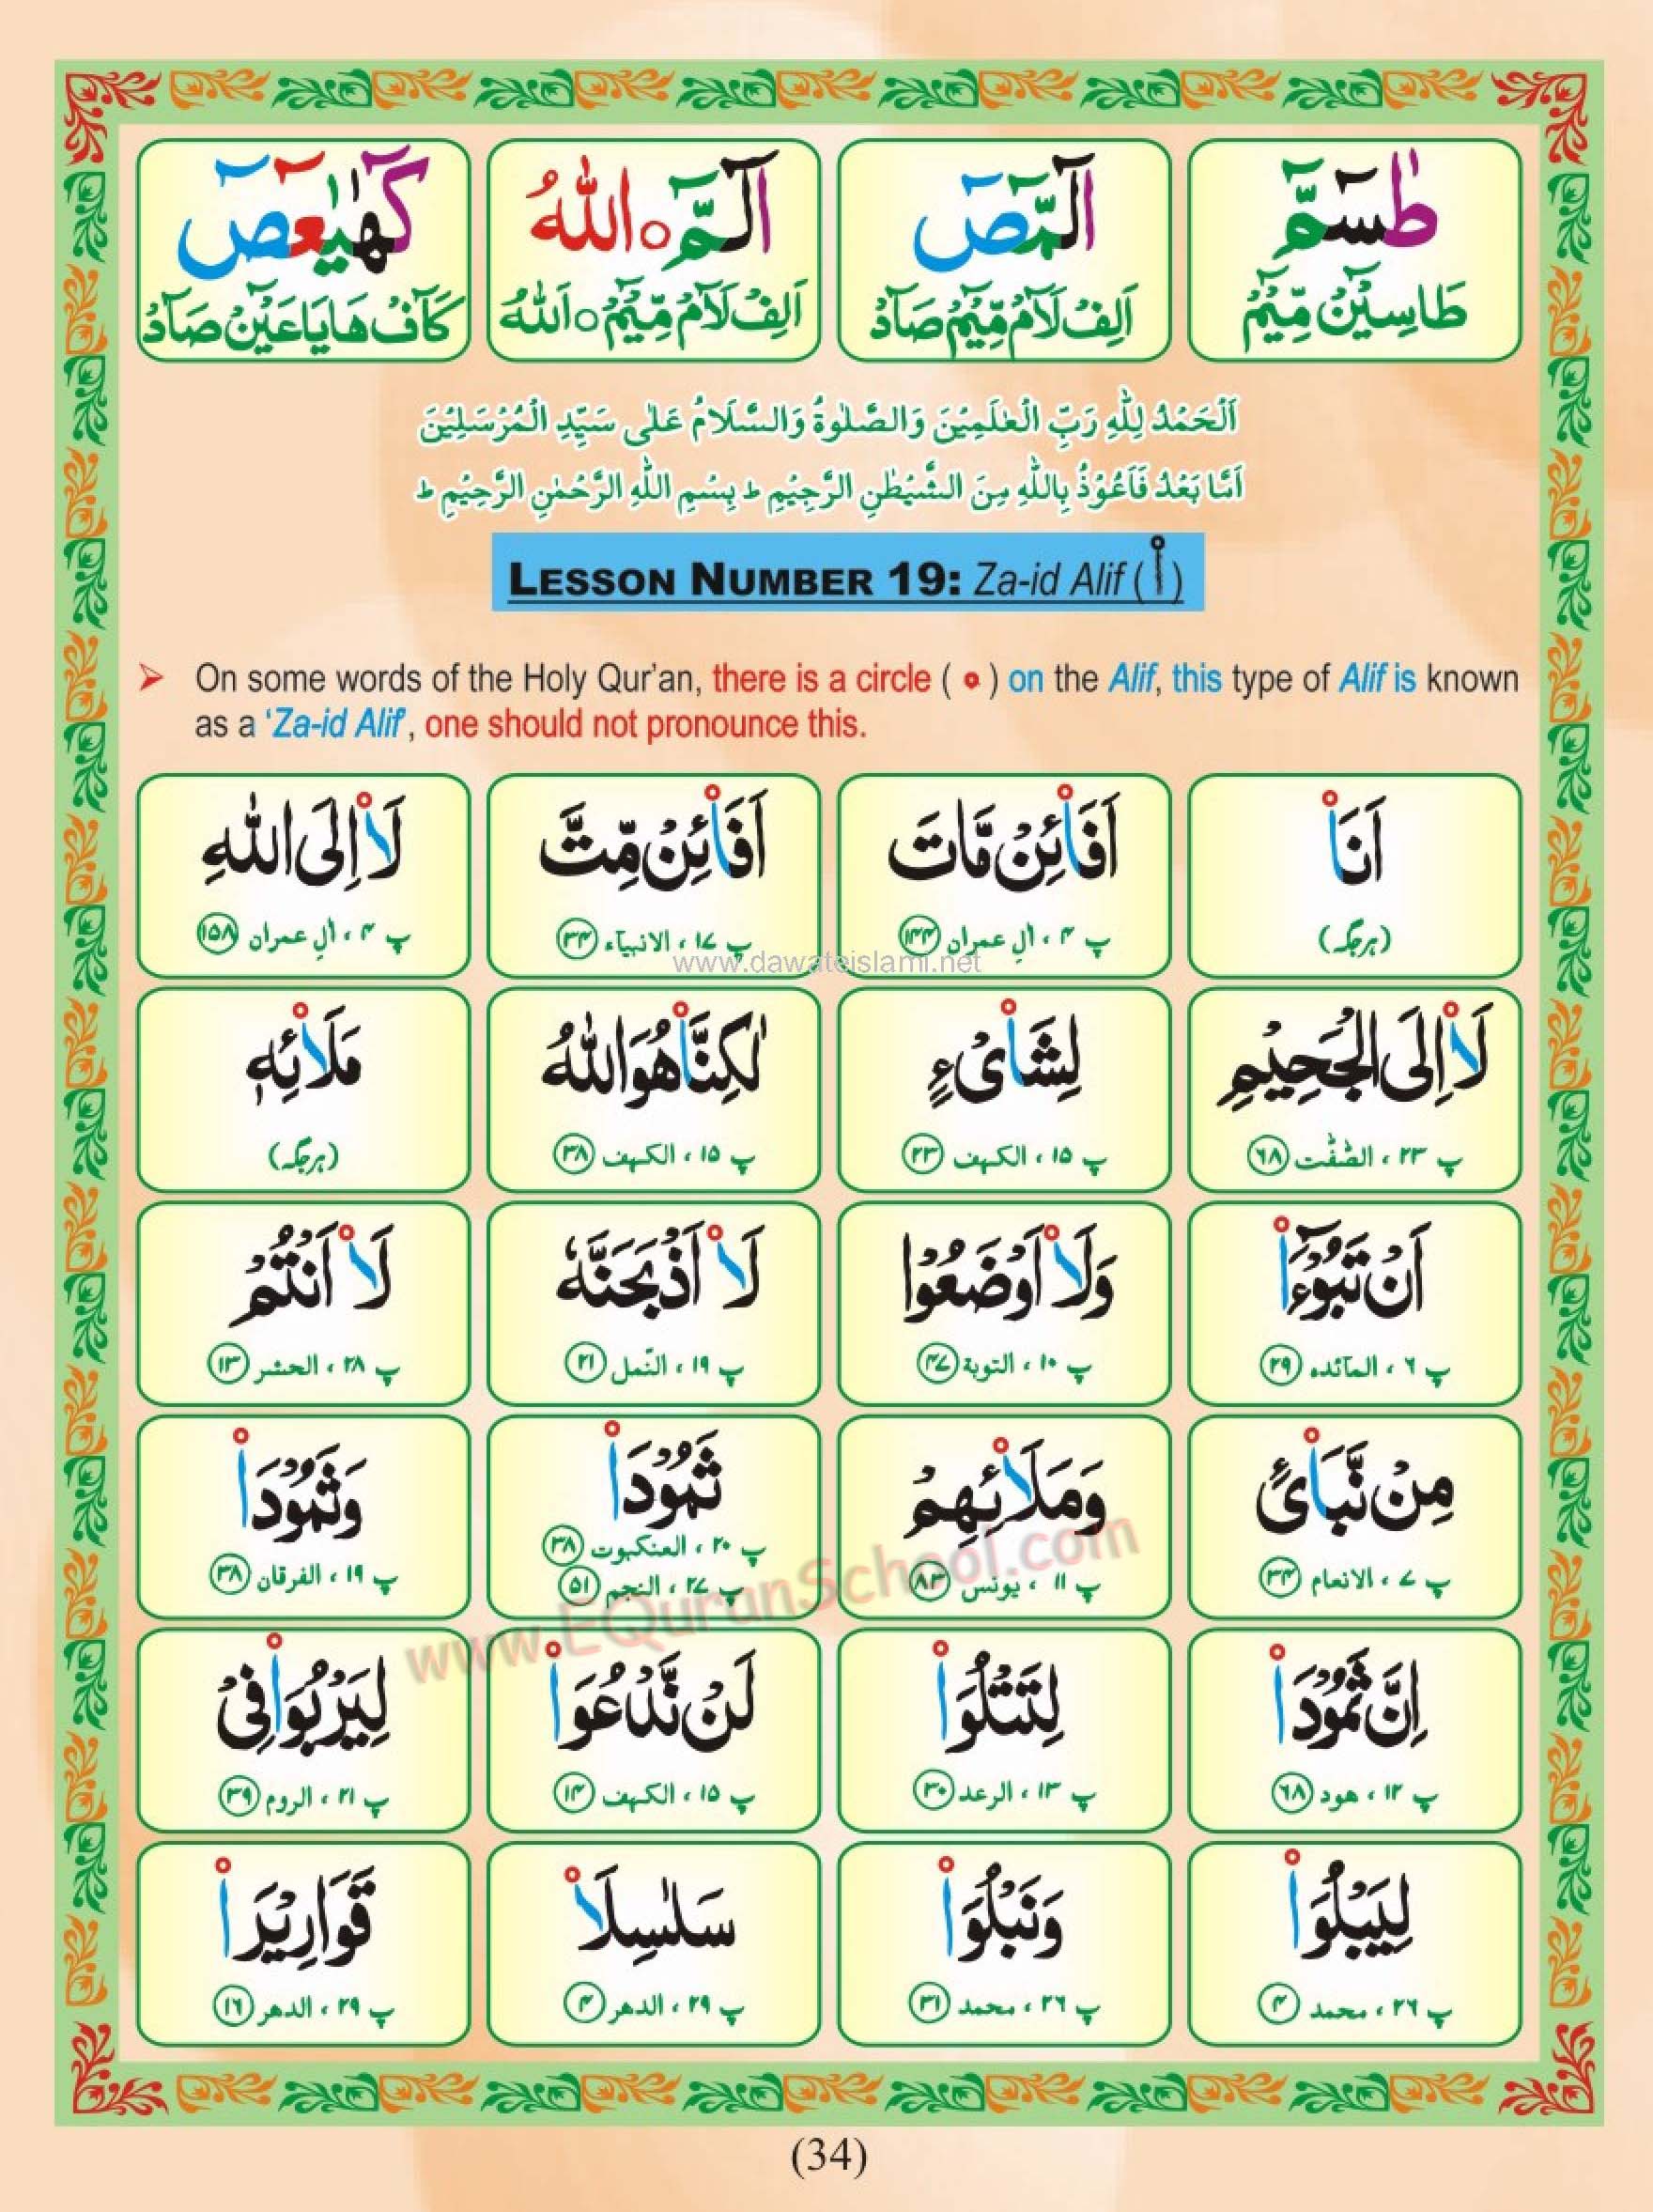 طٰسٓمّٓ
الٓمّٓصٓ
الٓمّٓ ○ اللّٰهُ
كٓهٰيٰعٓصٓ
طَاسِیْٓنْ مِّیْٓمْ
اَلِفْ لَآمْ مِّیْٓمْ صَآدْ
اَلِفْ لَآمْ مِّیْٓمْ ○ اَللّٰهُ
كَآفْ هَا يَا عَیْٓنْ صَآدْ
اَلْحَمْدُ لِلّٰهِ رَبِّ الْعٰلَمِیْنَ وَالصَّلٰوةُ وَالسَّلَامُ عَلٰی سَیِّدِ الْمُرْسَلِیْنَ
اَمَّا بَعْدُ فَاَعُوْذُ بِاللّٰهِ مِنَ الشَّیْطٰنِ الرَّجِیْمِ ط بِسْمِ اللّٰهِ الرَّحْمٰنِ الرَّحِیْمِ ط
LESSON NUMBER 19: Za-id Alif (اْ)
➢ On some words of the Holy Qur’an, there is a circle ( o ) on the Alif, this type of Alif is known
as a ‘Za-id Alif’, one should not pronounce this.
اَنَا۟
اَفَا۟ئِنْ مَّاتَ
اَفَا۟ئِنْ مِّتَّ
لَا۟اِلَی اللّٰهِ
(ہرجگہ)
پ ۴ ، اٰلِ عمران ۱۴۴
پ ۱۷ ، الانبیآء ۳۴
پ ۴ ، اٰلِ عمران ۱۵۸
www.dawateislami.net
لَا۟اِلَی الْجَحِیْمِ
لِشَا۟یْءٍ
لٰكِنَّا۟ هُوَ اللّٰهُ
مَلَا۟ئِهٖ
پ ۲۳ ، الصّٰفّٰت ۶۸
پ ۱۵ ، الكهف ۲۳
پ ۱۵ ، الكهف ۳۸
(ہرجگہ)
اَنْ تَبُوْٓءَا۟
وَلَا۟ اَوْضَعُوْا
لَا۟ اَذْبَحَنَّهٗ
لَا۟ اَنْتُمْ
پ ۶ ، المآئدہ ۲۹
پ ۱۰ ، التوبة ۴۷
پ ۱۹ ، النّمل ۲۱
پ ۲۸ ، الحشر ۱۳
مِنْ نَّبَا۟ئِ
وَمَلَا۟ئِهِمْ
ثَمُوْدَا۟
وَثَمُوْدَا۟
پ ۷ ، الانعام ۳۴
پ ۱۱ ، یونس ۸۳
پ ۲۰ ، العنکبوت ۳۸
پ ۲۷ ، النجم ۵۱
پ ۱۹ ، الفرقان ۳۸
www.EQuranSchool.com
اِنَّ ثَمُوْدَا۟
لِتَتْلُوَا۟
لَنْ نَّدْعُوَا۟
لِیَرْبُوَا۟ فِیْ
پ ۱۲ ، هود ۶۸
پ ۱۳ ، الرعد ۳۰
پ ۱۵ ، الكهف ۱۴
پ ۲۱ ، الروم ۳۹
لِیَبْلُوَا۟
وَنَبْلُوَا۟
سَلٰسِلَا۟
قَوَارِیْرَا۟
پ ۲۶ ، محمد ۴
پ ۲۶ ، محمد ۳۱
پ ۲۹ ، الدهر ۴
پ ۲۹ ، الدهر ۱۶
(34)